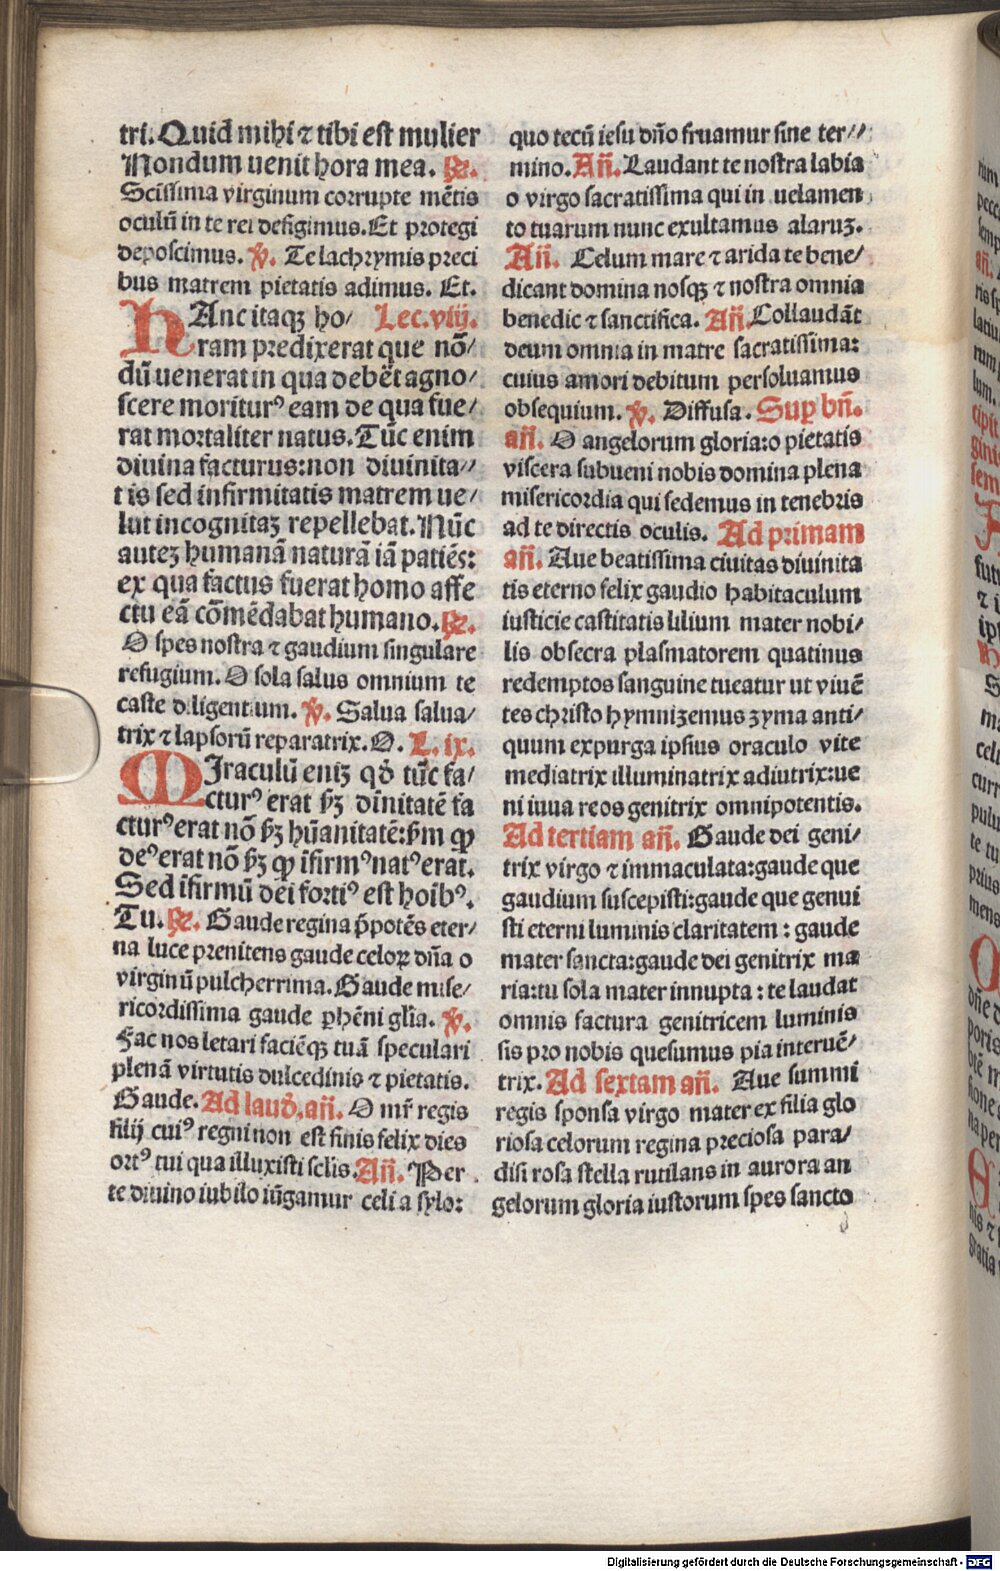 tri. Quid mihi ⁊ tibi est mulier
Nondum uenit hora mea. ℟.
Scīssima virginum corrupte mētis
oculū in te rei defigimus. Et protegi
deposcimus. ℣. Te lachrymis preci
bus matrem pietatis adimus. Et.
HAnc itaqꝫ ho/ Lec. viij.
ram predixerat que nō/
dū uenerat in qua debēt agno/
scere moriturꝰ eam de qua fue/
rat mortaliter natus. Tūc enim
diuina facturus: non diuinita//
tis sed infirmitatis matrem ue/
lut incognitaꝫ repellebat. Nūc
auteꝫ humanā naturā iā patiēs:
ex qua factus fuerat homo affe
ctu eā cōmēdabat humano. ℟.
O spes nostra ⁊ gaudium singulare
refugium. O sola salus omnium te
caste diligentium. ℣. Salua salua/
trix ⁊ lapsorū reparatrix. O. L. ix.
MIraculū eniꝫ qđ tūc fa/
cturꝰ erat ẜꝫ diīnitatē fa
cturꝰ erat nō ẜꝫ hūanitatē: p̄m ꝙ
deꝰ erat nō ẜꝫ ꝙ īfirmꝰ natꝰ erat.
Sed īfirmū dei fortiꝰ est hoībꝰ.
Tu. ℟. Gaude regina p̄potēs eter/
na luce prenitens gaude celoꝝ dn̄a o
virginū pulcherrima. Gaude mise/
ricordissima gaude ꝑhēni gl̄ia. ℣.
Fac nos letari faciēqꝫ tuā speculari
plenā virtutis dulcedinis ⁊ pietatis.
Gaude. Ad laud̄. an̄. O mr̄ regis
filij cuiꝰ regni non est finis felix dies
ortꝰ tui qua illuxisti sclis. An̄. Per
te diuino iubilo iūgamur celi a sylo:
quo tecū iesu dn̄o fruamur sine ter//
mino. An̄. Laudant te nostra labia
o virgo sacratissima qui in uelamen
to tuarum nunc exultamus alaruꝫ.
An̄. Celum mare ⁊ arida te bene/
dicant domina nosqꝫ ⁊ nostra omnia
benedic ⁊ sanctifica. An̄. Collaudāt
deum omnia in matre sacratissima:
cuius amori debitum persoluamus
obsequium. ℣. Diffusa. Suꝑ bn̄.
an̄. O angelorum gloria: o pietatis
viscera subueni nobis domina plena
misericordia qui sedemus in tenebris
ad te directis oculis. Ad primam
an̄. Aue beatissima ciuitas diuinita
tis eterno felix gaudio habitaculum
iusticie castitatis lilium mater nobi/
lis obsecra plasmatorem quatinus
redemptos sanguine tueatur ut viuē
tes christo hymnizemus zyma anti/
quum expurga ipsius oraculo vite
mediatrix illuminatrix adiutrix: ue
ni iuua reos genitrix omnipotentis.
Ad tertiam an̄. Gaude dei geni/
trix virgo ⁊ immaculata: gaude que
gaudium suscepisti: gaude que genui
sti eterni luminis claritatem: gaude
mater sancta: gaude dei genitrix ma
ria: tu sola mater innupta: te laudat
omnis factura genitricem luminis
sis pro nobis quesumus pia interuē/
trix. Ad sextam an̄. Aue summi
regis sponsa virgo mater ex filia glo
riosa celorum regina preciosa para/
disi rosa stella rutilans in aurora an
gelorum gloria iustorum spes sancto
Digitalisierung gefördert durch die Deutsche Forschungsgemeinschaft - DFG